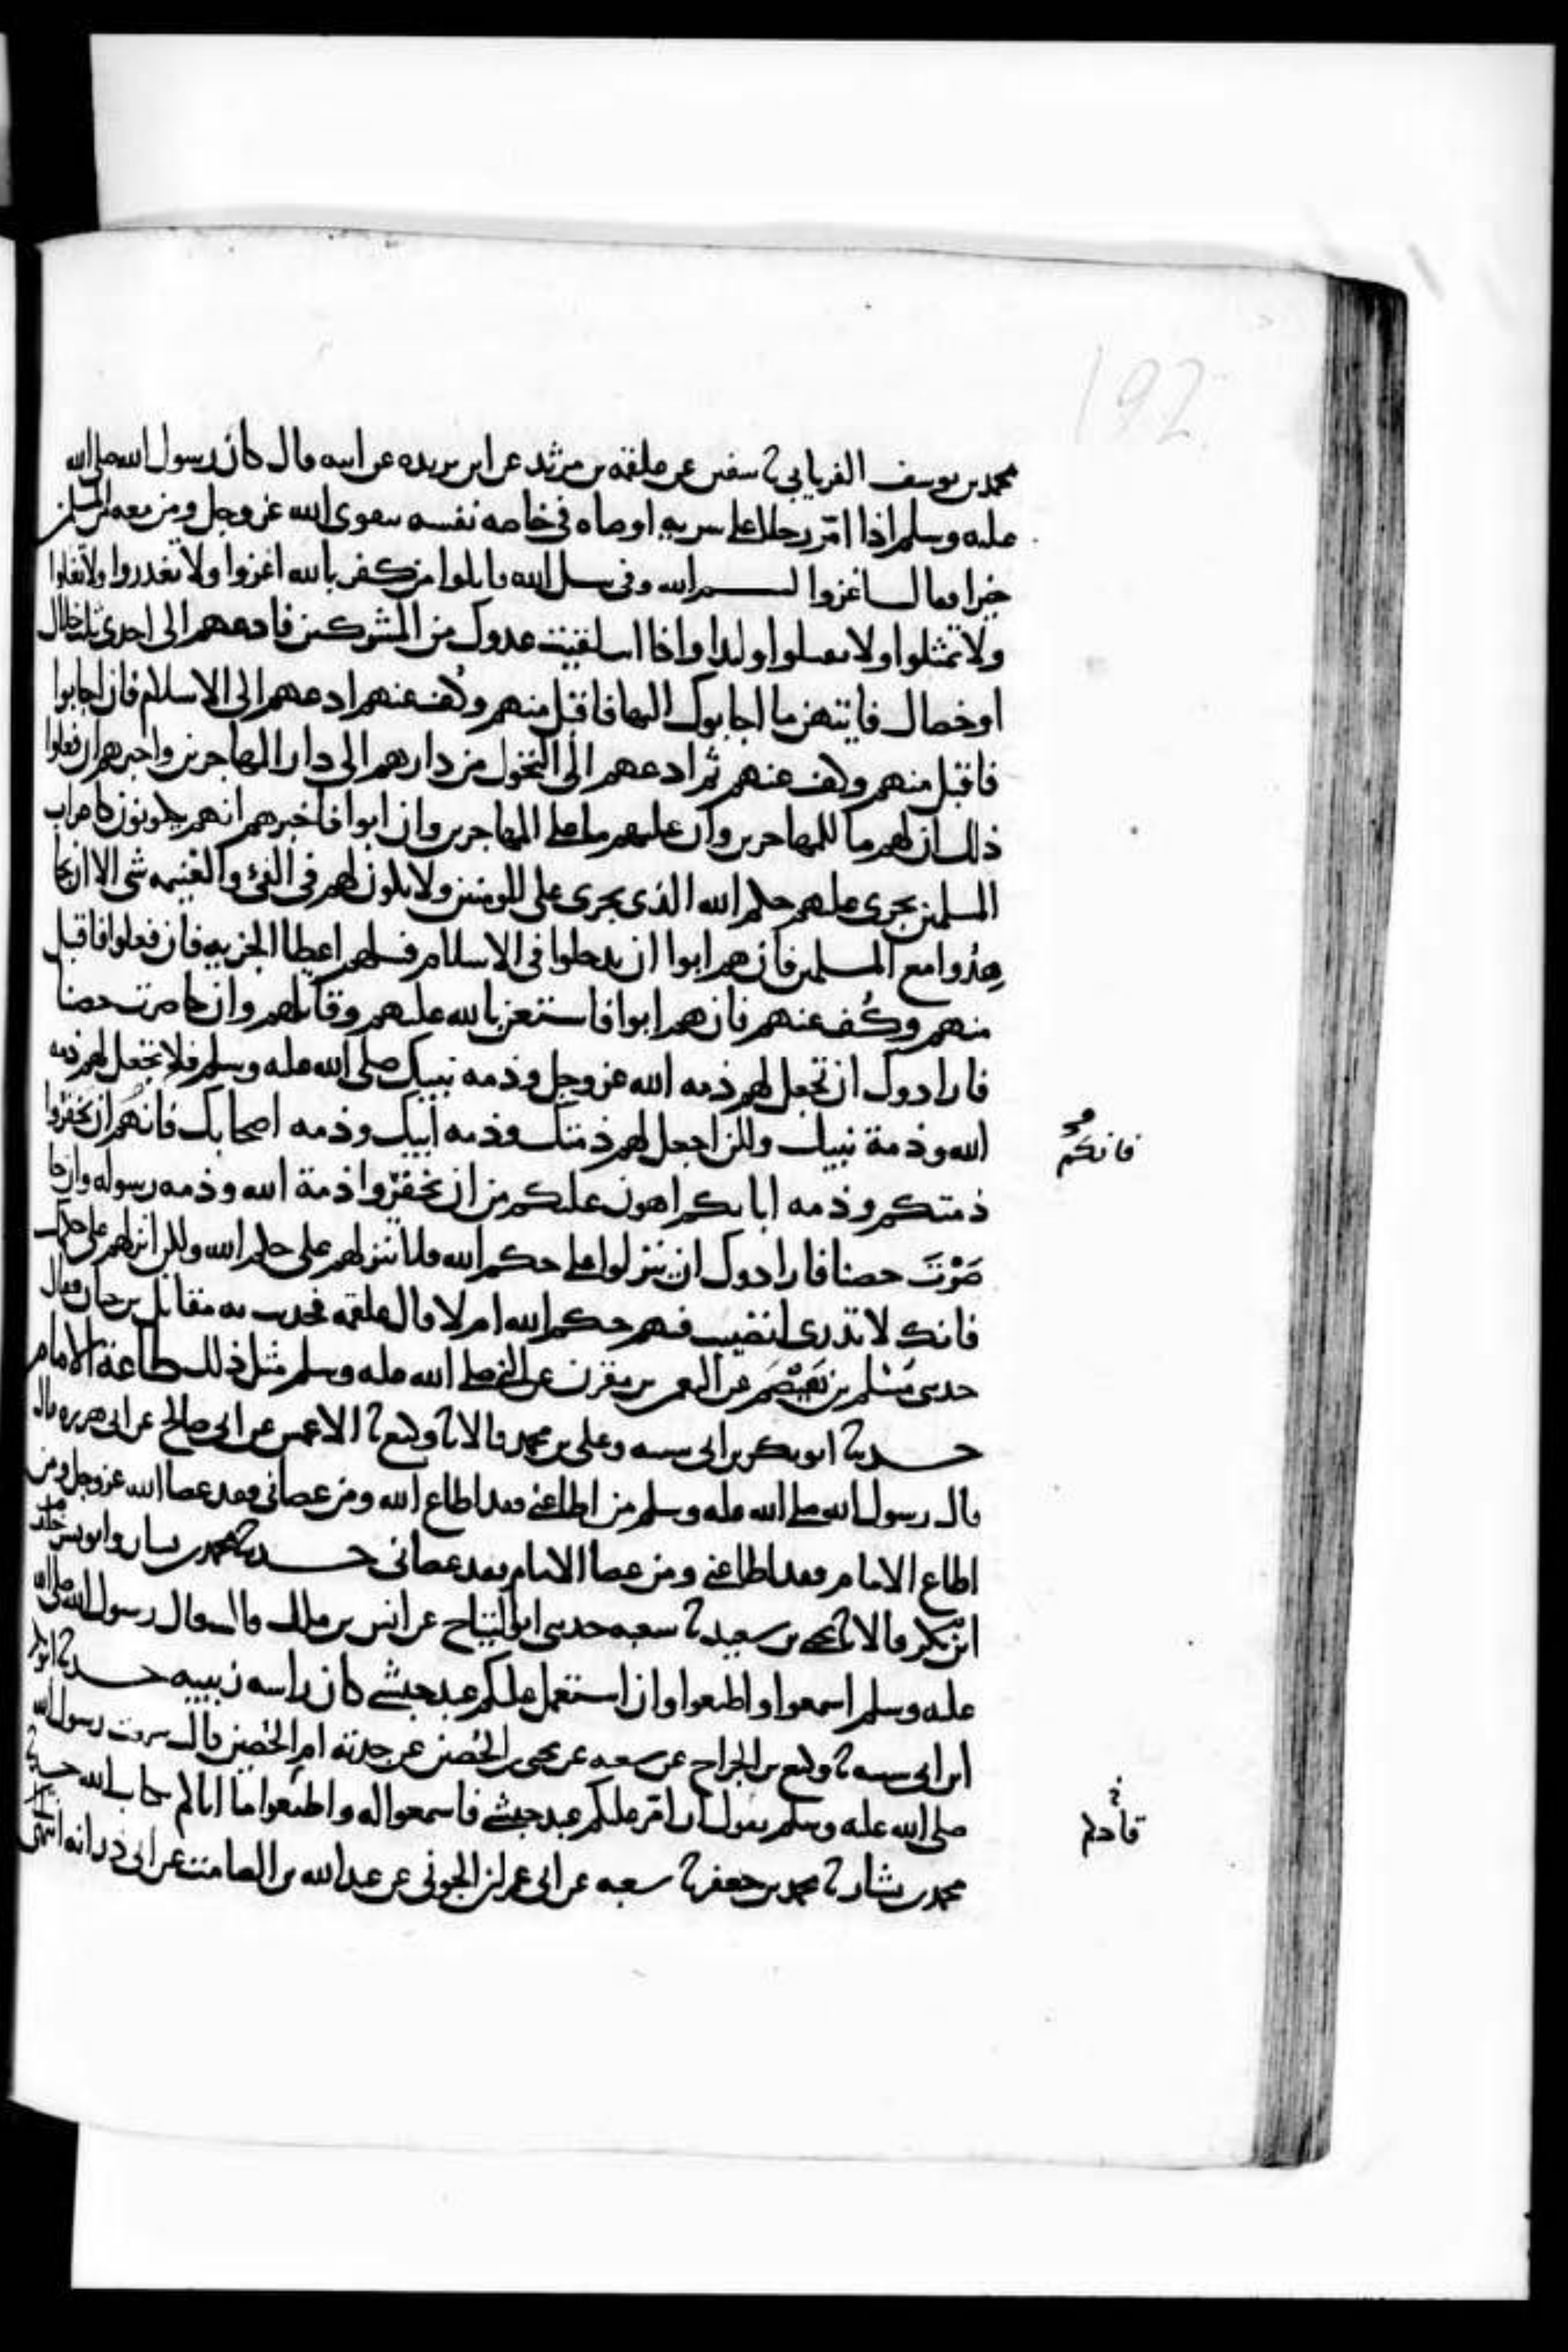 192
محمد بن يوسف الفريابي ثنا سفين عن علقمه بن مرثد عن ابن بريده عن ابيه قال كان رسول الله صلى الله
عليه وسلم اذا امّر رجلا على سريه اوصاه في خاصه نفسه بتقوى الله عز وجل ومن معه من المسلمين
خيرا فقال اغزوا بسم الله وفي سبيل الله قاتلوا من كفر بالله اغزوا ولا تغدروا ولا تغلوا
ولا تمثلوا ولا تقتلوا وليدا واذا انت لقيت عدوك من المشركين فادعهم الى احدى ثلث خلال
او خصال فايتهن ما اجابوك اليها فاقبل منهم وكُف عنهم ادعهم الى الاسلام فان اجابوا
فاقبل منهم وكف عنهم ثم ادعهم الى التحول من دارهم الى دار المهاجرين واخبرهم ان فعلوا
ذلك ان لهم ما للمهاجرين وان عليهم ما على المهاجرين وان ابوا فاخبرهم انهم يكونون كاعراب
المسلمين يجرى عليهم حكم الله الذى يجرى على المومنين ولا يكون لهم في الفئ والغنيمه شى الا ان يجا
هِدُوا مع المسلمين فان هم ابوا ان يدخلوا في الاسلام فسلهم اعطا الجزيه فان فعلوا فاقبل
منهم وكُف عنهم فان هم ابوا فاستعن بالله عليهم وقاتلهم وان حاصرت حصنا
فارادوك ان تجعل لهم ذمه الله عز وجل وذمه نبيك صلى الله عليه وسلم فلا تجعل لهم ذمه
الله وذمة نبيك ولكن اجعل لهم ذمتك وذمه ابيك وذمه اصحابك فانهم ان تخفروا
فانكم
ذمتكم وذمه ابايكم اهون عليكم من ان تخفروا ذمة الله وذمه رسوله وان حا
صَرْتَ حصنا فارادوك ان ينزلوا على حكم الله فلا تنزلهم على حكم الله ولكن انزلهم على حكمك
فانك لا تدرى اتصيب فيهم حكم الله ام لا قال علقمه فحدثت به مقاتل بن حيان فقال
حدثنى مُسْلم بن هَيْصَم عن النعمن بن مقرن عن النبي صلى الله عليه وسلم مثل ذلك طاعة الامام
حدثنا ابو بكر بن ابى شيبه وعلى بن محمد قالا ثنا وكيع ثنا الاعمش عن ابى صالح عن ابى هريره قال
قال رسول الله صلى الله عليه وسلم من اطاعنى فقد اطاع الله ومن عصانى فقد عصا الله عز وجل ومن
اطاع الامام فقد اطاعنى ومن عصا الامام فقد عصانى حدثنا محمد بن بشار وابو بشر خلف
ابن بكر قالا ثنا يحيى بن سعيد ثنا شعبه حدثنى ابو التياح عن انس بن ملك قال قال رسول الله صلى الله
عليه وسلم اسمعوا واطيعوا وان استعمل عليكم عبد حبشى كان راسه زبيبه حدثنا ابو بكر
ابن ابى شيبه ثنا وكيع بن الجراح عن شعبه عن يحيى بن الحُصين عن جدته ام الحُصين قالت سمعت رسول الله
صلى الله عليه وسلم يقول ان امّر عليكم عبد حبشى فاسمعوا له واطيعوا ما قادكم بكتاب الله حدثنا
قادكم
محمد بن بشار ثنا محمد بن جعفر ثنا شعبه عن ابى عمران الجونى عن عبد الله بن الصامت عن ابى ذر انه انتهى